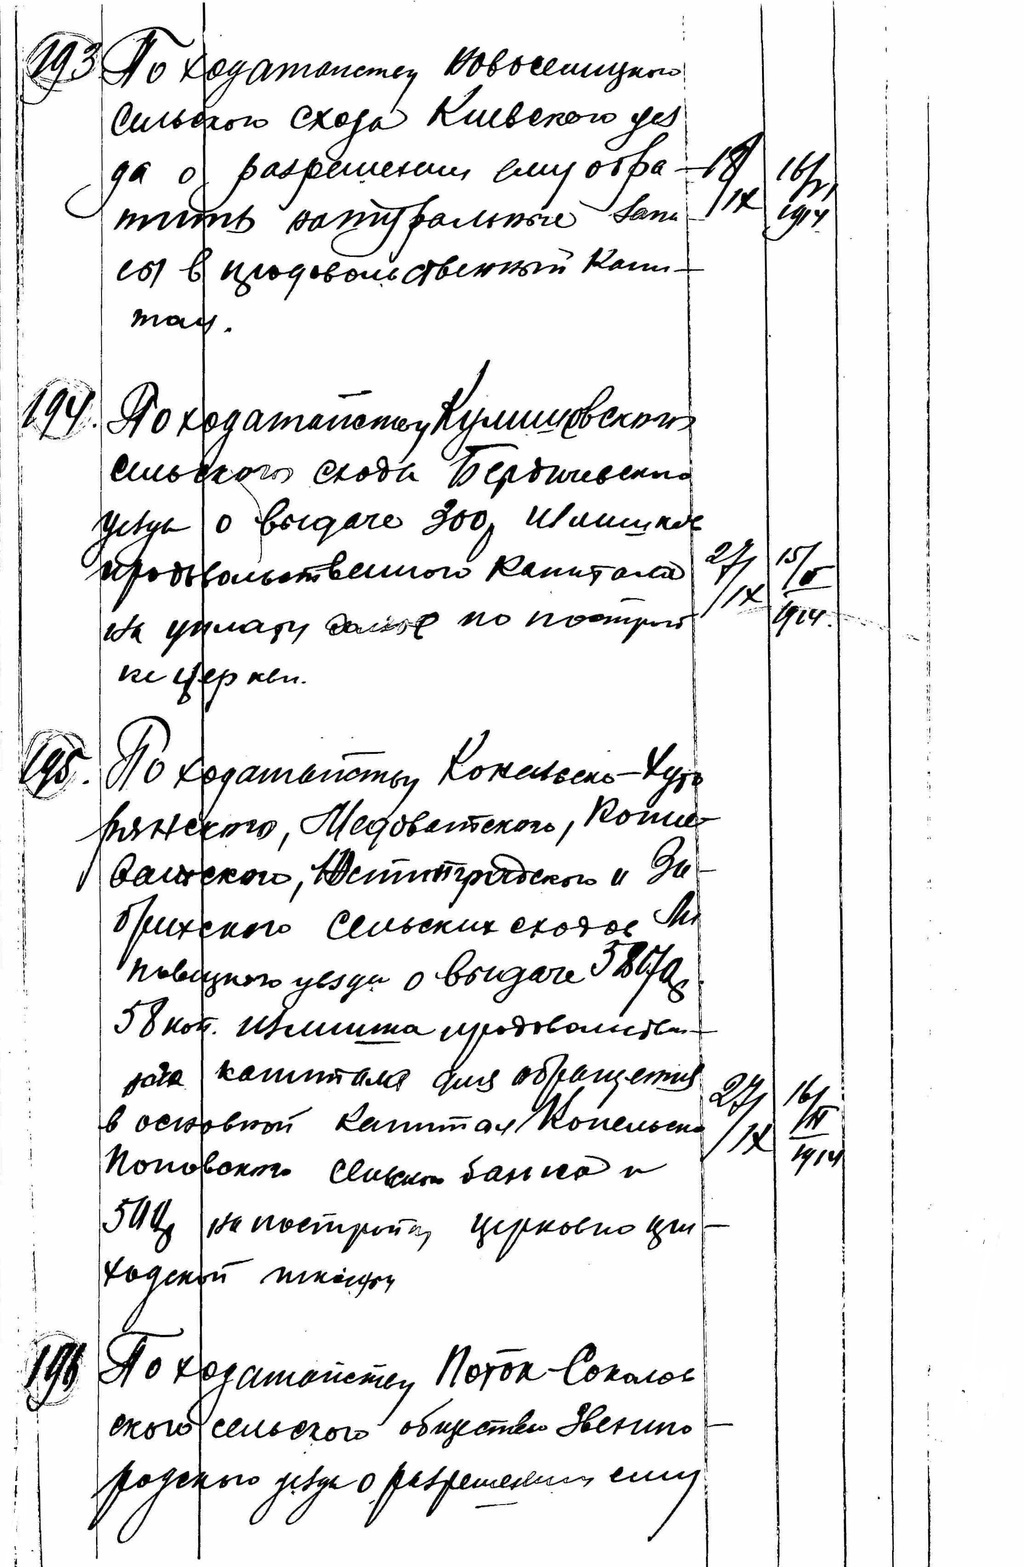 193 По ходатайству Новоселицкого
сельского схода Киевского уез
да о разрешении ему обра-
тить натуральные запа
сы в продовольственный капи-
тал.
18/IX
16/VI 1914
194. По ходатайству Кулишовского
сельского схода Бердичевского
уезда о выдаче 300р излишков
продовольственного капитала
на уплату долгов по построй
ке церкви.
27/IX
15/V 1914.
195. По ходатайству Конельско-Хуто
рянского, Медоватского, Копие
ватского, Юстинградского и За-
брихского сельских сходов Ли
повецкого уезда о выдаче
58 коп. излишка продовольствен-
капитала для обращения
в основной капитал Конельско
Поповского сельского банка и
на постройку церковно при-
ходской школы
27/IX
16/ 1914
196 По ходатайству Поток-Соколов
ского сельского общества Звениго-
родского уезда о разрешении ему